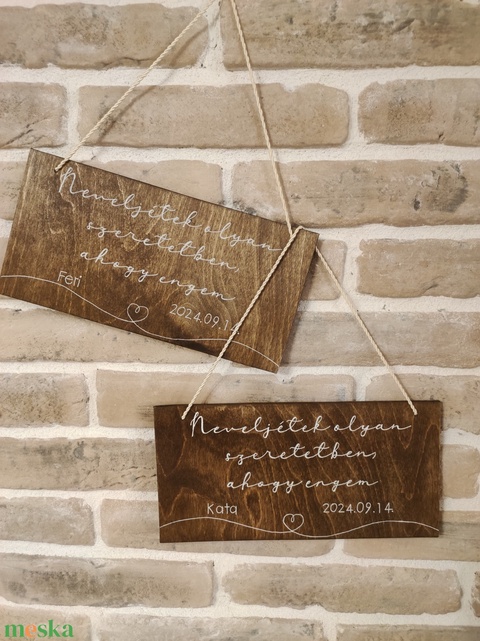 Neveljétek olyan
szeretetben,
ahogy engem
Feri
2024.09.14.
Neveljétek olyan
szeretetben,
ahogy engem
Kata 2024.09.14.
meska